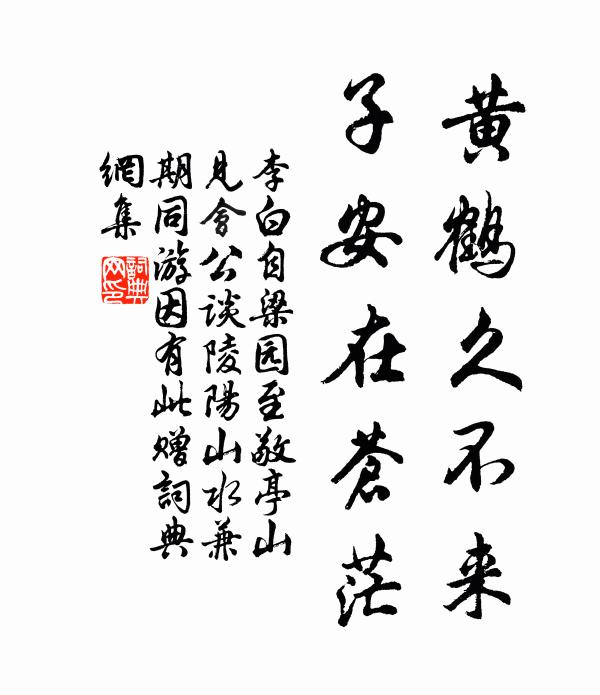 黄鹤久不来
子安在蒼茫
李白自梁园至敬亭山
見會公谈陵陽山水兼
期同游因有此赠詞典
網集
詞典网印